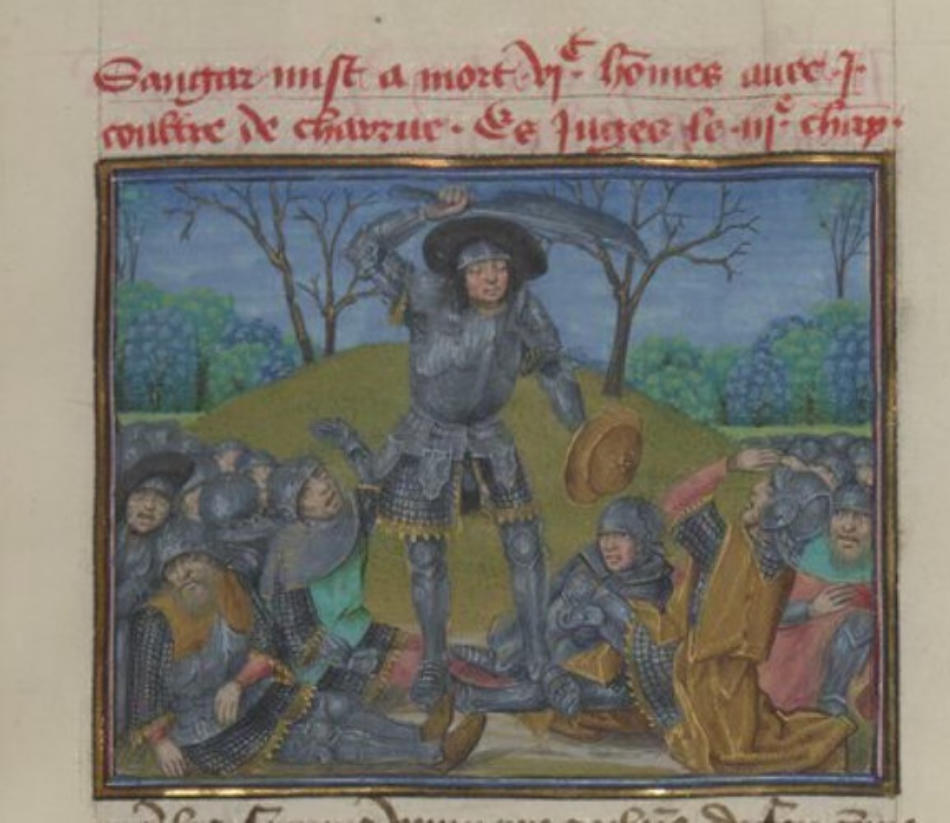 Sangar mist a mort · vjᶜ · hōmes auec · j ·
coultre de charrue · Es Juges le · iijᵉ · chap̄ ·